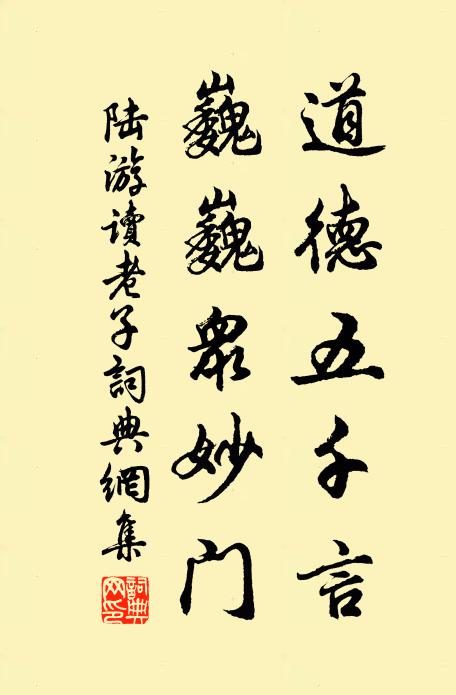 道德五千言
巍巍眾妙门
陆游读老子詞典網集
詞典网印